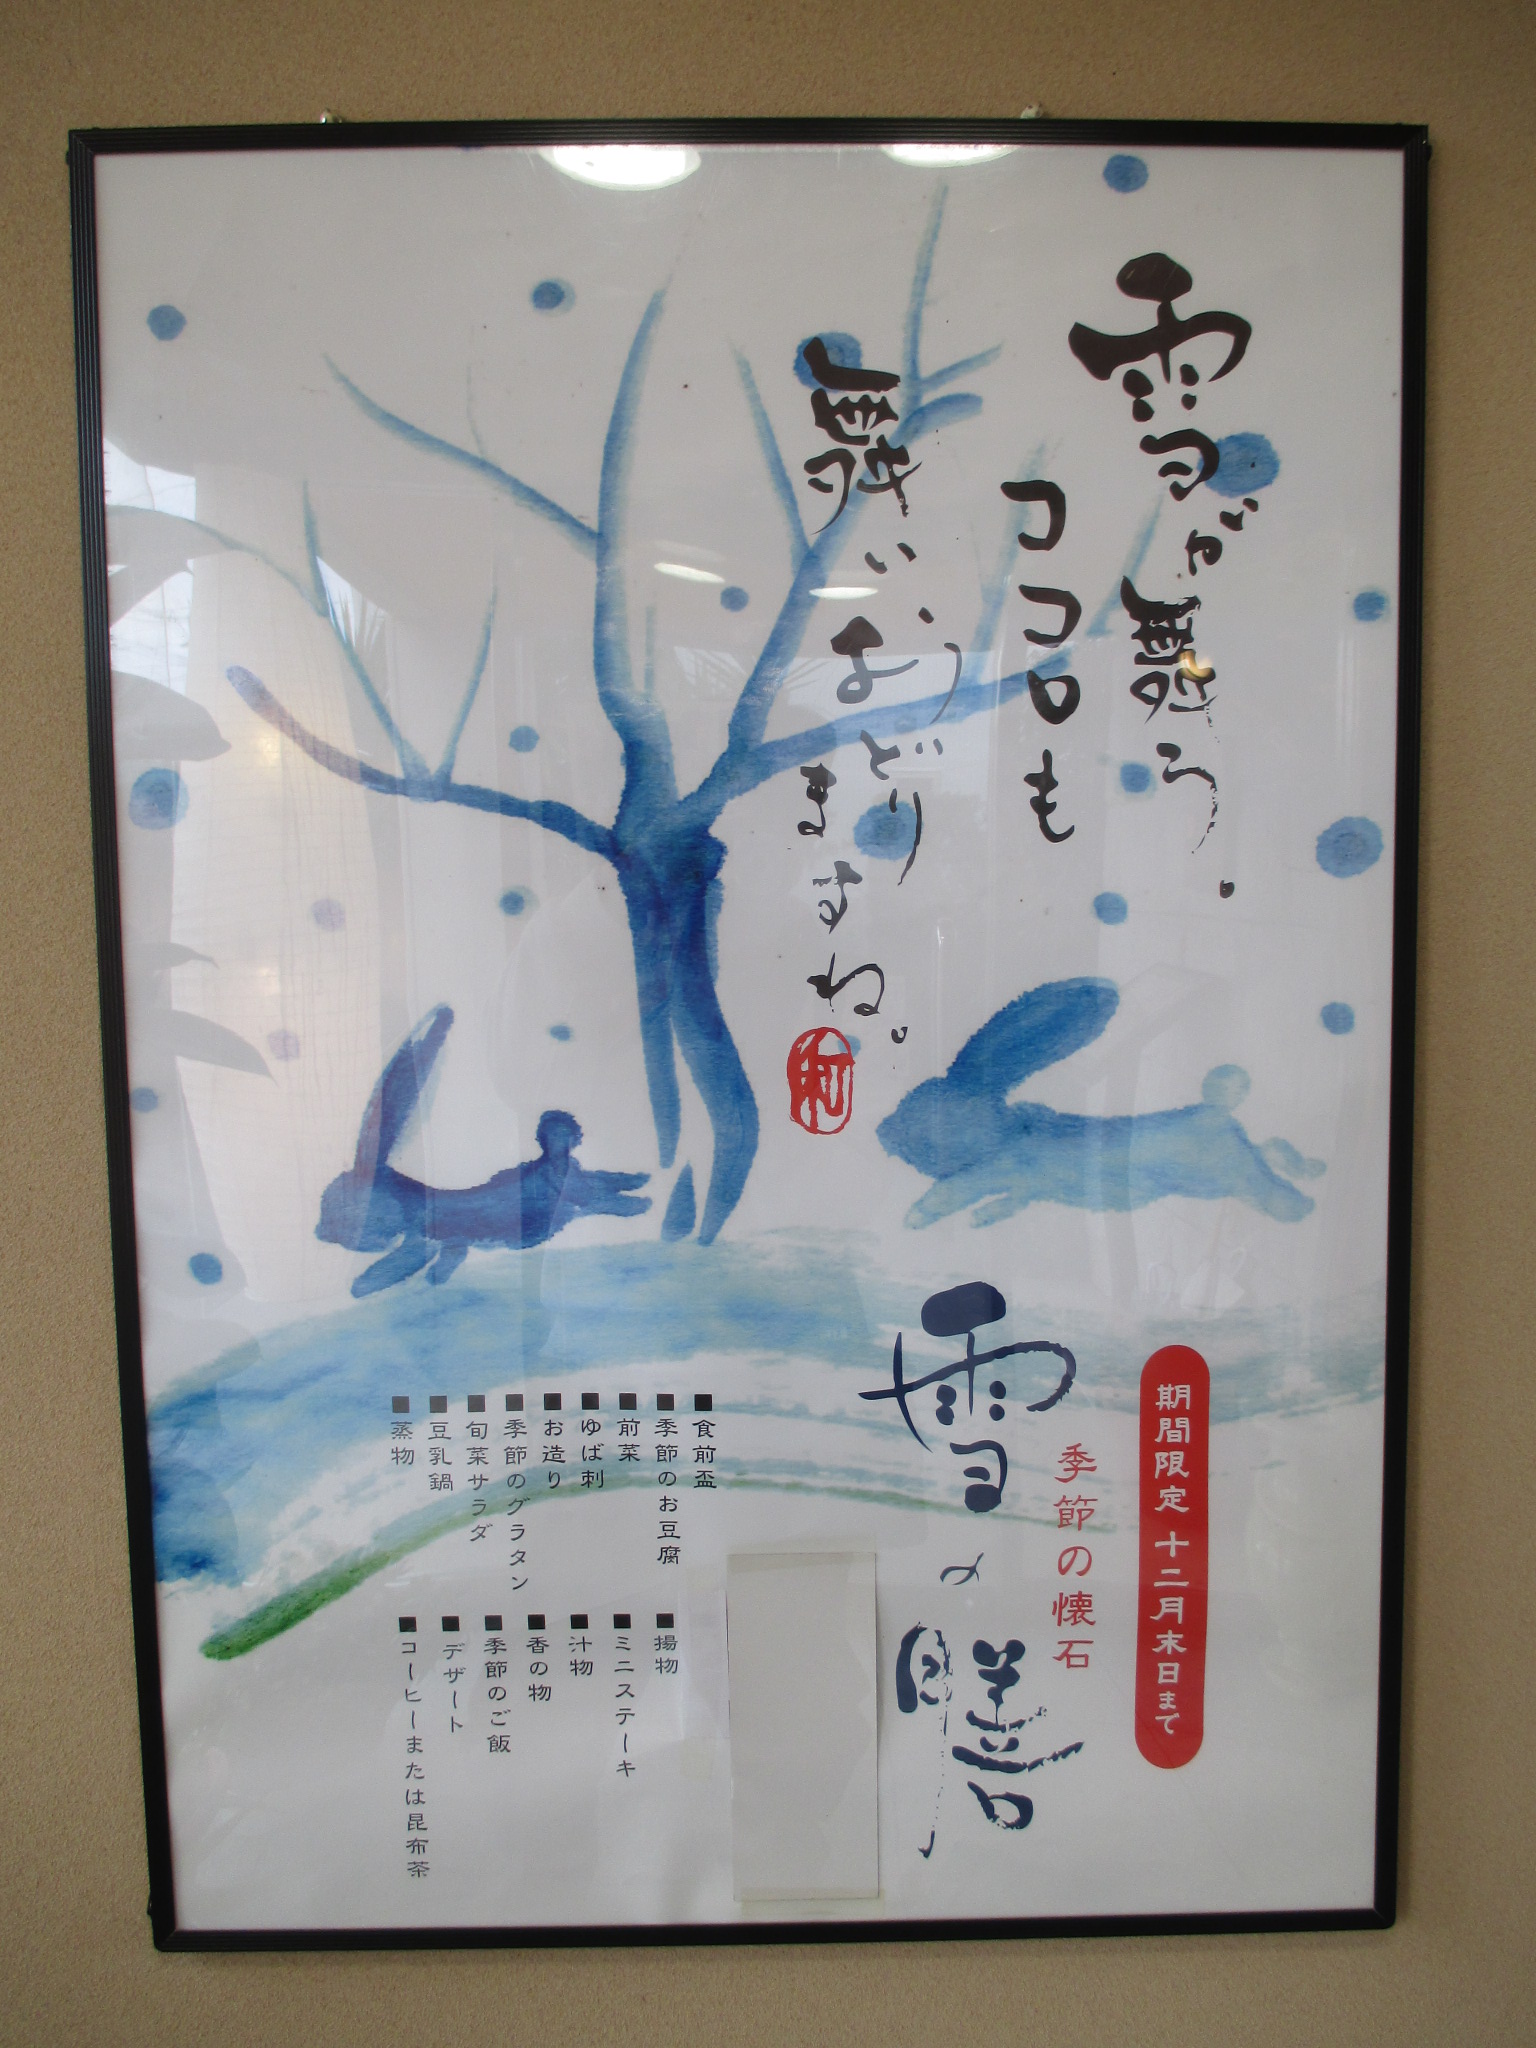 雪が舞う。
ココロも
舞いおどりますね。
期間限定 十二月末日まで
季節の懐石
雪の膳
■食前盃
■季節のお豆腐
■前菜
■ゆば刺
■お造り
■季節のグラタン
■旬菜サラダ
■豆乳鍋
■蒸物
■揚物
■ミニステーキ
■汁物
■香の物
■季節のご飯
■デザート
■コーヒーまたは昆布茶